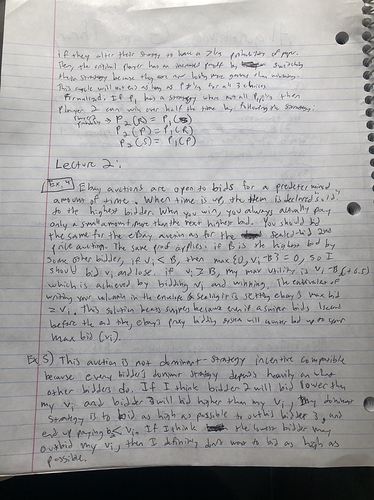 if they alter their strategy to have a > 1/3 probability of paper.
Then the original player has an increased profit by switching
their strategy because they are now losing more games than winning.
This cycle will not end as long as P ≠ 1/3 for all 3 choices
Formalized: If P1 has a strategy where not all then
Player 2 can win over half the time by following the strategy:
P2(R) = P1(S)
P2(P) = P1(R)
P2(S) = P1(P)
Lecture 2:
Ex. 4 Ebay auctions are open to bids for a predetermined
amount of time. When time is up, the item is declared sold
to the highest bidder. When you win, you always actually pay
only a small amount more than the next highest bid. You should bid
the same for the ebay auction as for the sealed-bid 2nd
price auction. The same proof applies: if B is the highest bid by
some other bidder, if vi < B, then max{0, vi - B} = 0, so I
should bid vi and lose. if vi ≥ B, my max utility is vi - B
which is achieved by bidding vi and winning. The equivalent of
writing your valuation in the envelope & sealing it is setting ebay's max bid
= vi. This solution beats snipers because even if a sniper bids 1 second
before the end time, ebay's proxy bidding system will counter bid up to your
max bid (vi).
Ex 5) This auction is not dominant-strategy incentive compatible
because every bidder's dominant strategy depends heavily on what
other bidders do. If I think bidder 2 will bid lower than
my vi and bidder 3 will bid higher than my vi, my dominant
strategy is to bid as high as possible to outbid bidder 3, and
end up paying b2 < vi. If I think the lowest bidder may
outbid my vi, then I definitely don't want to bid as high as
possible.